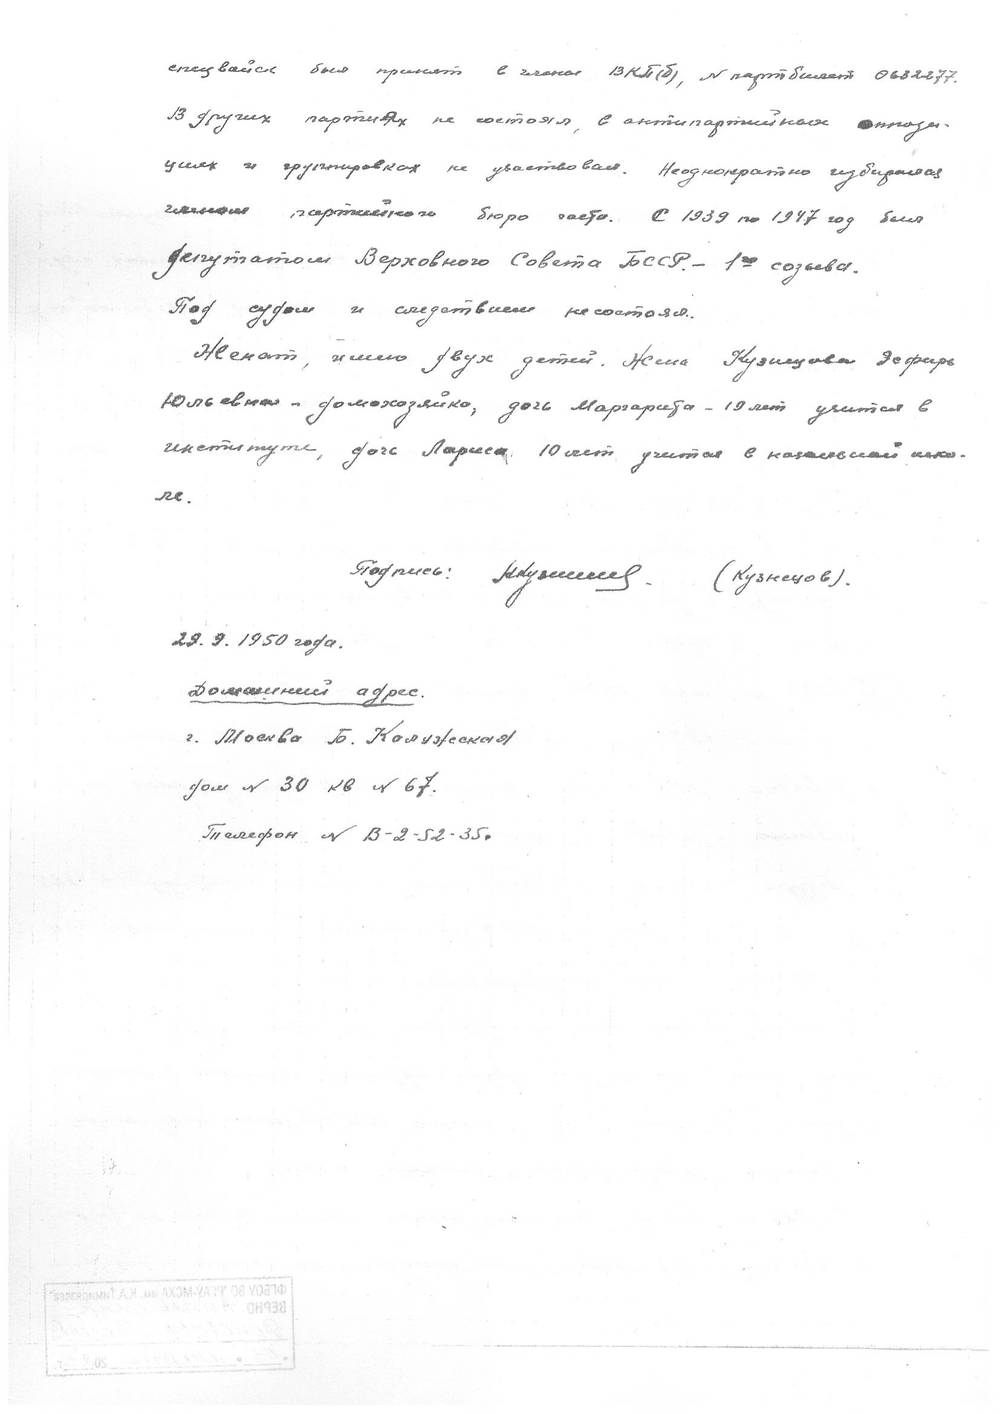 спецвойск был принят в члены ВКП(б), N партбилет 0632277.
В других партиях не состоял, в антипартийных оппози-
циях и группировках не участвовал. Неоднократно избирался
членом партийного бюро части. С 1939 по 1947 год был
депутатом Верховного Совета БССР. – 1го созыва.
Под судом и следствием несостоял.
Женат, имею двух детей. Жена Кузнецова Эсфирь
Юльевна – домохозяйка, дочь Маргарита – 19 лет учится в
институте, дочь Лариса 10 лет учится в начальной шко-
ле.
Подпись: (Кузнецов).
29. 9. 1950 года.
Домашний адрес.
г. Москва Б. Калужская
дом N 30 кв N 67.
Телефон N В-2-52-35.
ФГБОУ ВО РГАУ-МСХА им. К.А.Тимирязева"
ВЕРНО
20